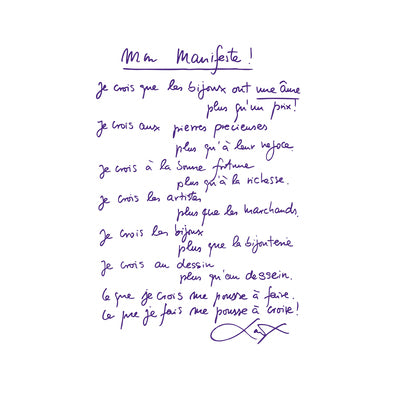 Mon Manifeste !
Je crois que les bijoux ont une âme
plus qu'un prix !
Je crois aux pierres precieuses
plus qu'à leur négoce.
Je crois à la bonne fortune
plus qu'à la richesse.
Je crois les artistes
plus que les marchands.
Je crois les bijoux
plus que la bijouterie
Je crois au dessin
plus qu'au dessein.
Ce que je crois me pousse à faire.
Ce que je fais me pousse à croire !